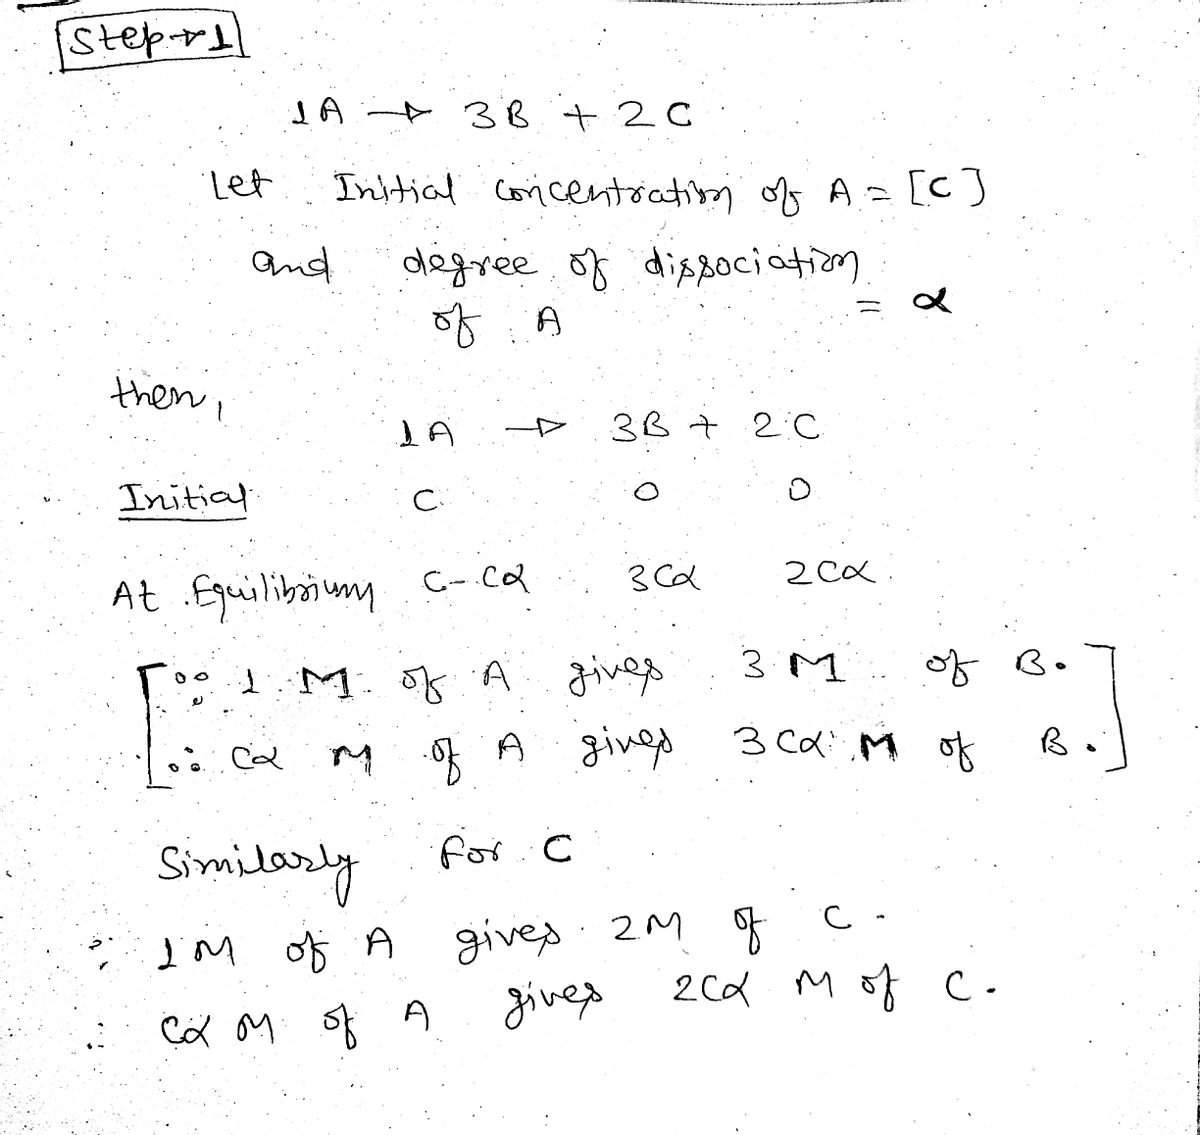 Step → 1
1A → 3B + 2C
Let Initial concentration of A = [C]
and degree of dissociation
of A = α
then,
1A → 3B + 2C
Initial C 0 0
At Equilibrium C-Cα 3Cα 2Cα
[∵ 1 M of A gives 3 M of B.
∴ Cα M of A gives 3Cα M of B.]
Similarly for C
∵ 1M of A gives 2M of C.
∴ Cα M of A gives 2Cα M of C.